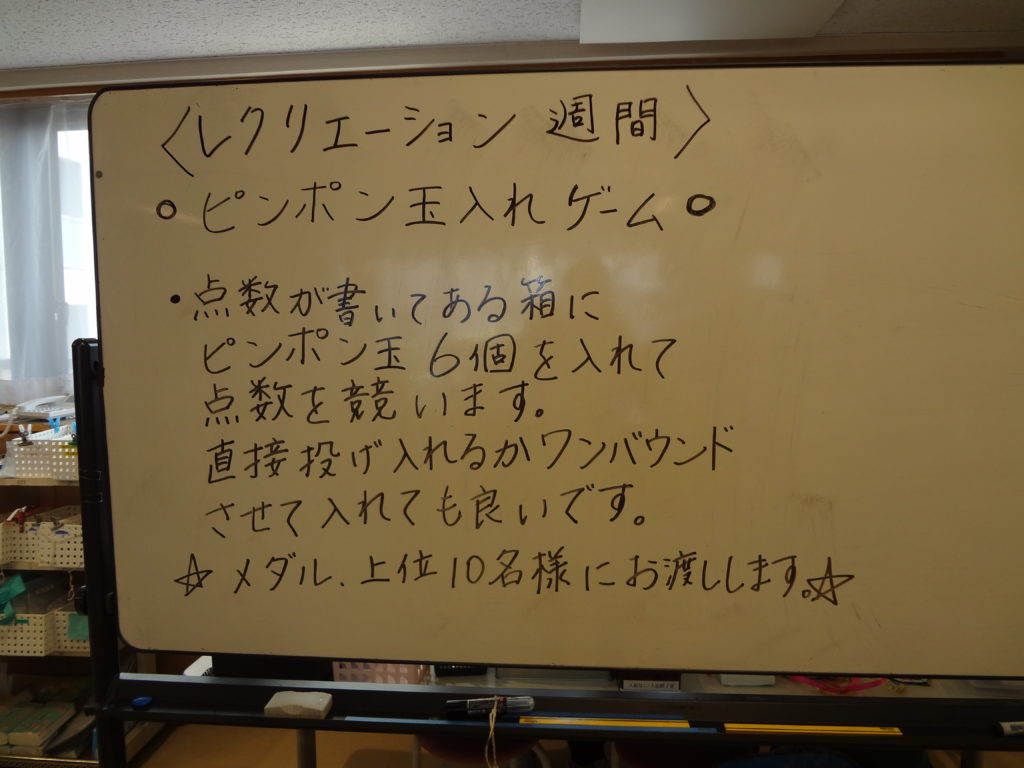 〈レクリエーション 週間〉
○ピンポン玉入れゲーム○
・点数が書いてある箱に
ピンポン玉6個を入れて
点数を競います。
直接投げ入れるかワンバウンド
させて入れても良いです。
☆メダル、上位10名様にお渡しします。☆